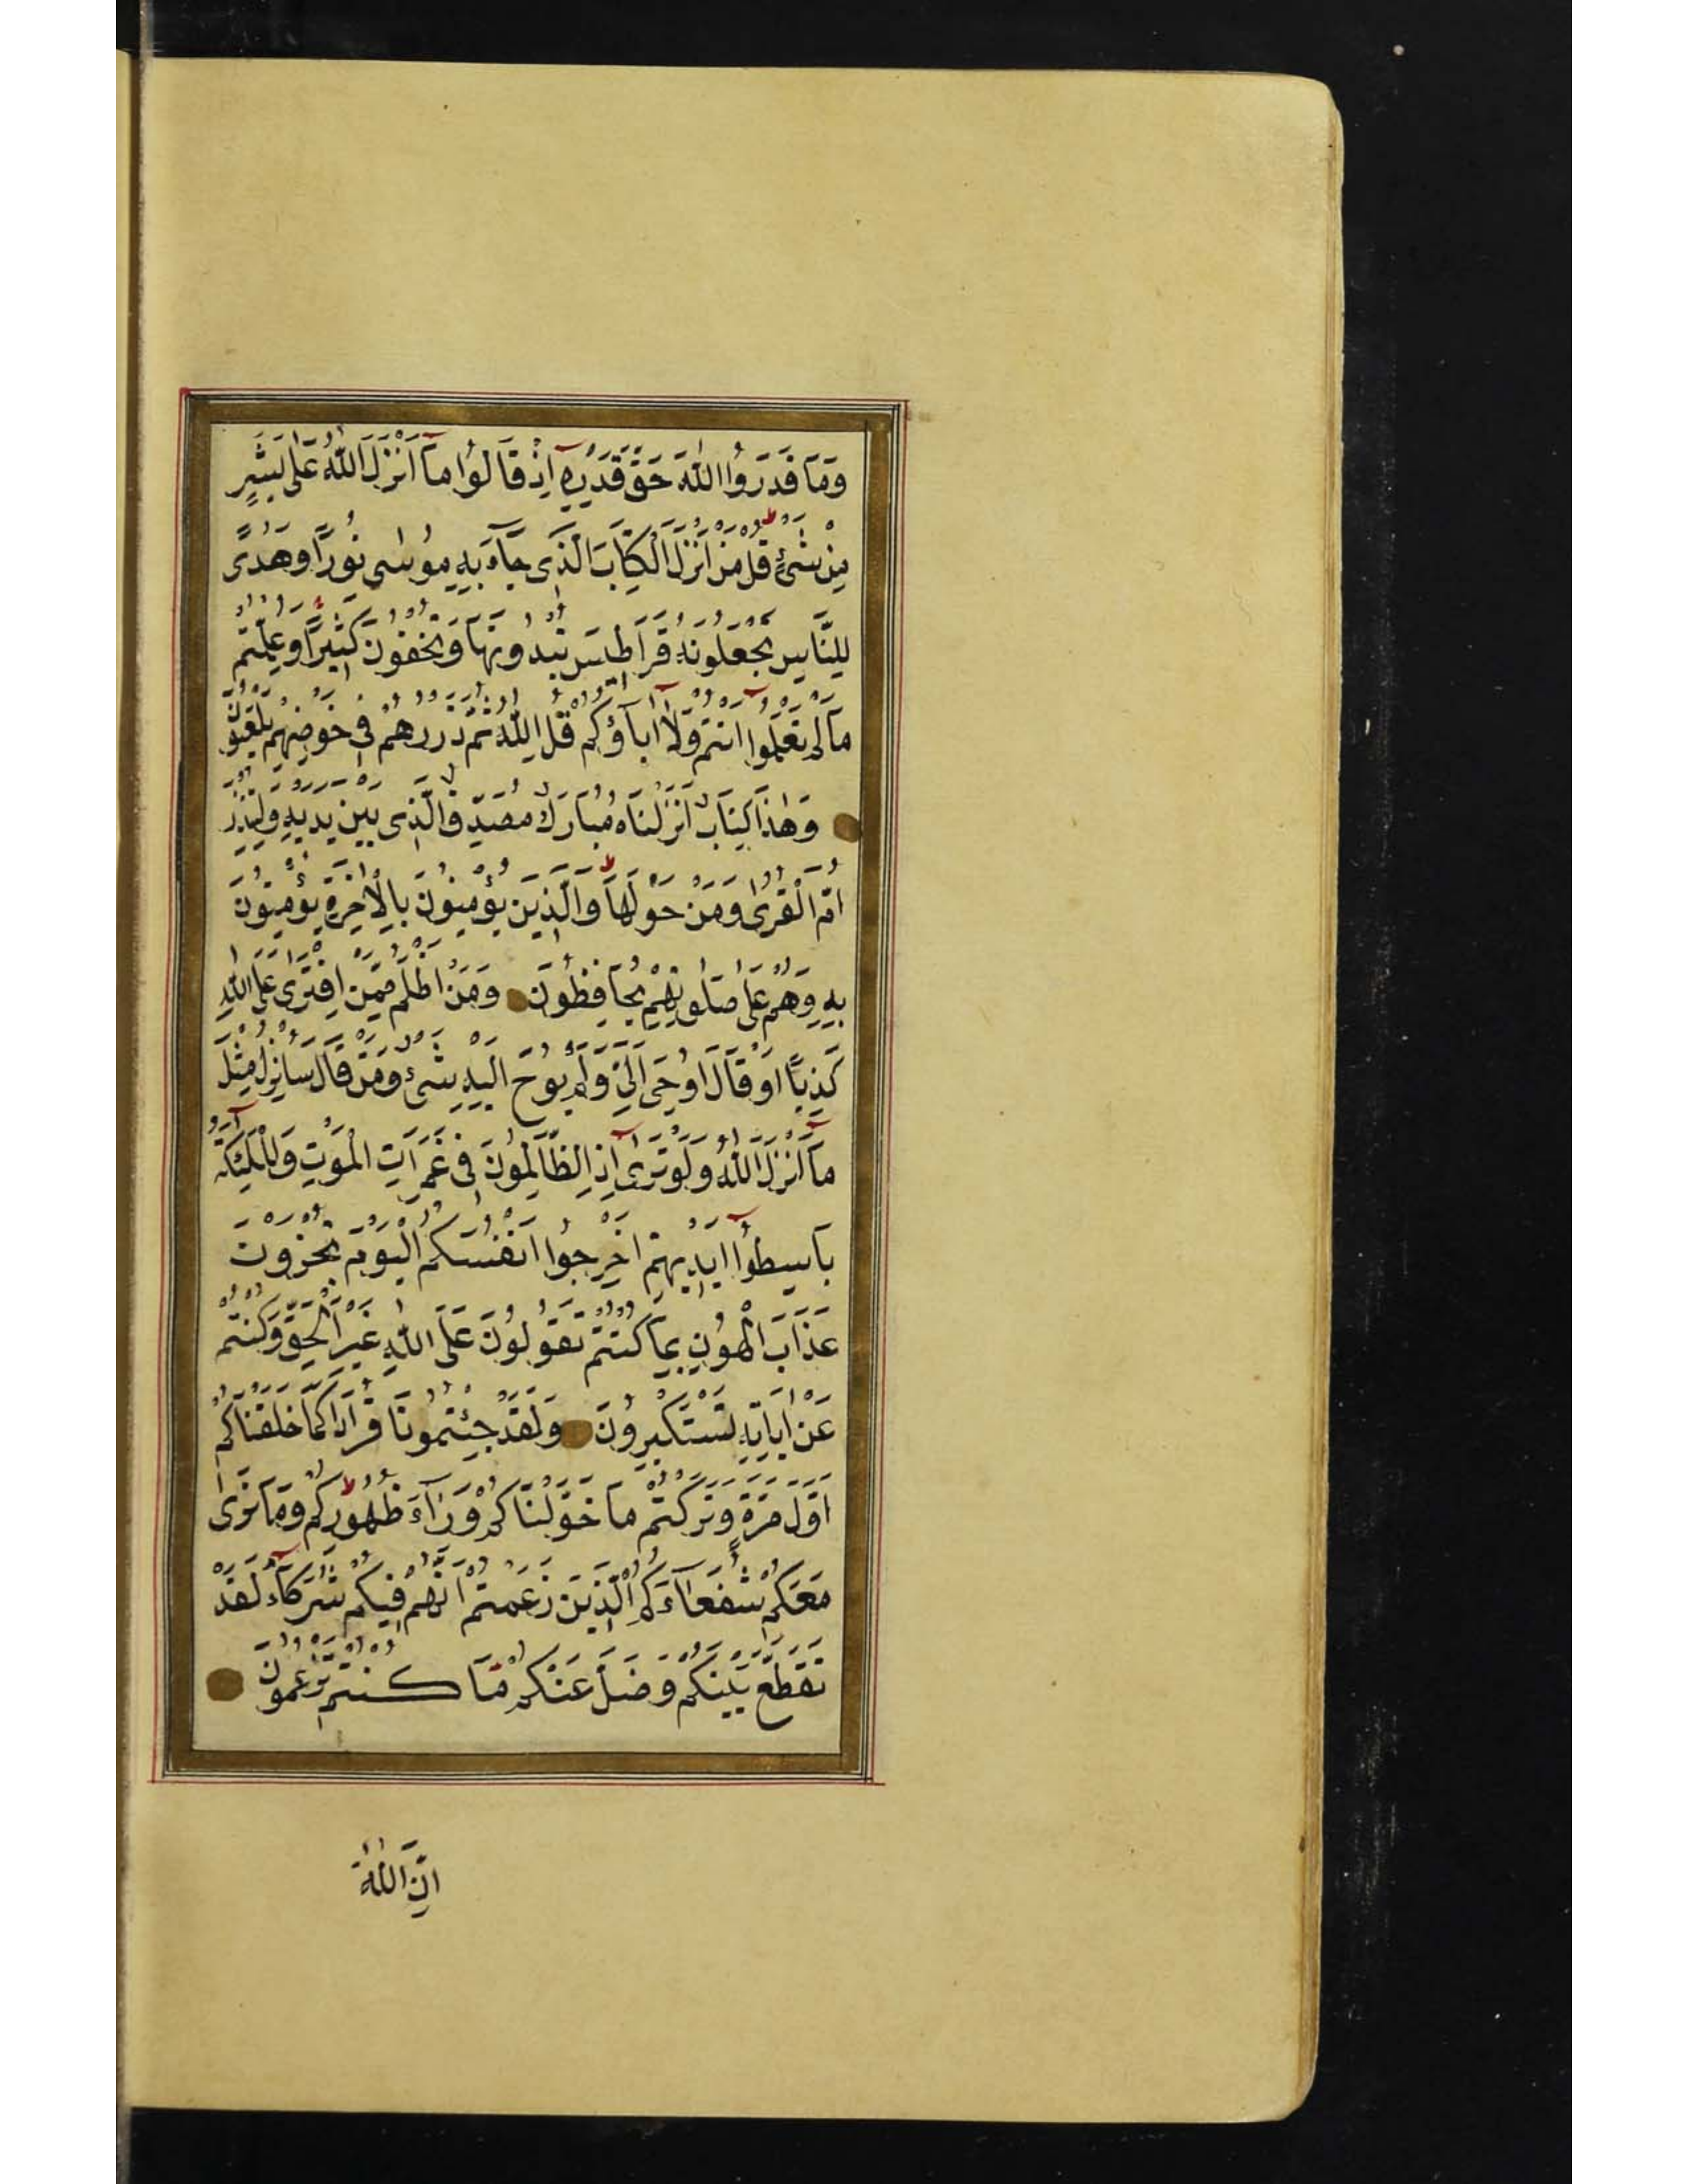 وَمَا قَدَرُوا اللّٰهَ حَقَّ قَدْرِهِ اِذْ قَالُوا مَآ اَنْزَلَ اللّٰهُ عَلٰى بَشَرٍ
مِنْ شَىْءٍ قُلْ مَنْ اَنْزَلَ الْكِتَابَ الَّذِى جَآءَ بِهِ مُوسٰى نُورًا وَهُدًى
لِلنَّاسِ تَجْعَلُونَهُ قَرَاطِيسَ تُبْدُونَهَا وَتُخْفُونَ كَثِيرًا وَعُلِّمْتُمْ
مَا لَمْ تَعْلَمُوا اَنْتُمْ وَلَا اٰبَآؤُكُمْ قُلِ اللّٰهُ ثُمَّ ذَرْهُمْ فِى خَوْضِهِمْ يَلْعَبُونَ
وَهٰذَا كِتَابٌ اَنْزَلْنَاهُ مُبَارَكٌ مُصَدِّقُ الَّذِى بَيْنَ يَدَيْهِ وَلِتُنْذِرَ
اُمَّ الْقُرٰى وَمَنْ حَوْلَهَا وَالَّذِينَ يُؤْمِنُونَ بِالْاٰخِرَةِ يُؤْمِنُونَ
بِهِ وَهُمْ عَلٰى صَلٰوتِهِمْ يُحَافِظُونَ وَمَنْ اَظْلَمُ مِمَّنِ افْتَرٰى عَلَى اللّٰهِ
كَذِبًا اَوْ قَالَ اُوحِىَ اِلَىَّ وَلَمْ يُوحَ اِلَيْهِ شَىْءٌ وَمَنْ قَالَ سَاُنْزِلُ مِثْلَ
مَآ اَنْزَلَ اللّٰهُ وَلَوْ تَرٰى اِذِ الظَّالِمُونَ فِى غَمَرَاتِ الْمَوْتِ وَالْمَلٰٓئِكَةُ
بَاسِطُوا اَيْدِيهِمْ اَخْرِجُوا اَنْفُسَكُمْ اَلْيَوْمَ تُجْزَوْنَ
عَذَابَ الْهُونِ بِمَا كُنْتُمْ تَقُولُونَ عَلَى اللّٰهِ غَيْرَ الْحَقِّ وَكُنْتُمْ
عَنْ اٰيَاتِهِ تَسْتَكْبِرُونَ وَلَقَدْ جِئْتُمُونَا فُرَادٰى كَمَا خَلَقْنَاكُمْ
اَوَّلَ مَرَّةٍ وَتَرَكْتُمْ مَا خَوَّلْنَاكُمْ وَرَآءَ ظُهُورِكُمْ وَمَا نَرٰى
مَعَكُمْ شُفَعَآءَكُمُ الَّذِينَ زَعَمْتُمْ اَنَّهُمْ فِيكُمْ شُرَكَآءُ لَقَدْ
تَقَطَّعَ بَيْنَكُمْ وَضَلَّ عَنْكُمْ مَا كُنْتُمْ تَزْعُمُونَ
اِنَّ اللّٰهَ